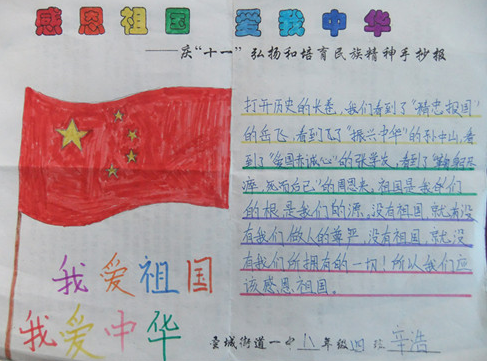 感恩祖国 爱我中华
——庆“十一”弘扬和培育民族精神手抄报
打开历史的长卷，我们看到了“精忠报国”
的岳飞，看到了“振兴中华”的孙中山，看
到了“爱国赤诚心”的张学良，看到了“鞠躬尽
瘁，死而后已”的周恩来，祖国是我们们
的根是我们的源，没有祖国就有没
有我们做人的尊严，没有祖国，就没
有我们所拥有的一切！所以我们应
该感恩祖国。
我爱祖国
我爱中华
城街道一中八年级四班 辛浩